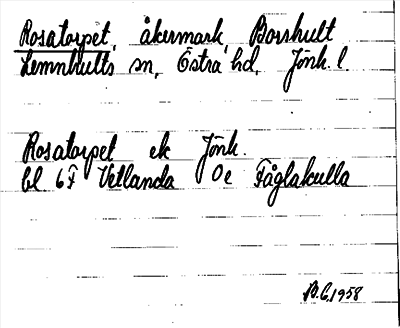 Rosatorpet, åkermark, Borshult
Lemnhults sn, Östra hd, Jönk. l.
Rosatorpet ek Jönk.
bl. 6F Vetlanda Oe Fåglakulla
B.C. 1958